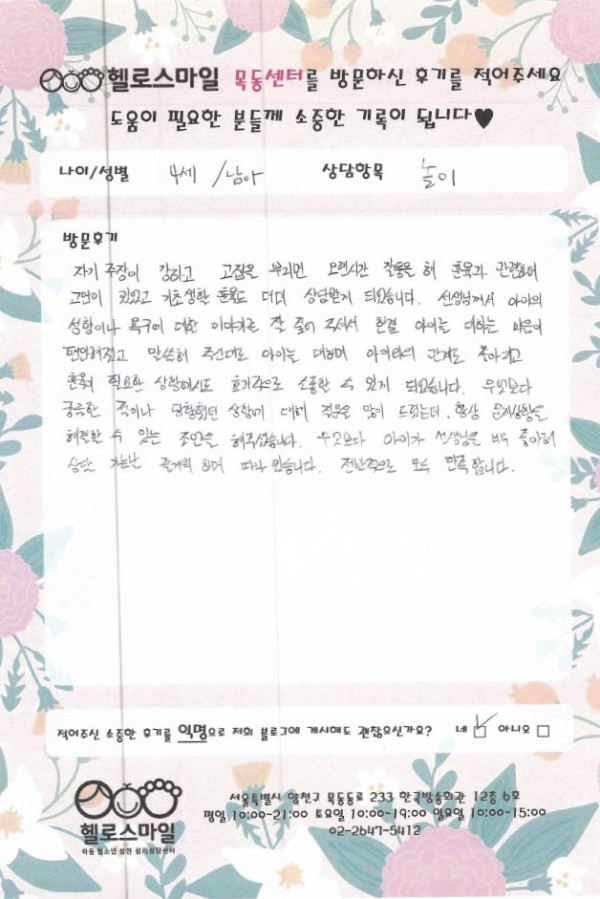 헬로스마일 목동센터를 방문하신 후기를 적어주세요
도움이 필요한 분들께 소중한 기록이 됩니다♥
나이/성별 4세 /남아 상담항목 놀이
방문후기
자기 주장이 강하고 고집을 부리면 오랜시간 작동을 해 훈육과 관련하여
고민이 있었고 기초생활 훈육도 더뎌 상담받게 되었습니다. 선생님께서 아이의
성향이나 욕구에 대한 이야기를 잘 풀어 주셔서 한결 아이를 대하는 마음이
편안해졌고 말씀해 주신대로 아이를 대하며 아이와의 관계도 좋아지고
훈육이 필요한 상황에서도 효과적으로 소통할 수 있게 되었습니다. 무엇보다
궁금한 쪽이나 당황했던 상황에 대해 질문을 많이 드렸는데 항상 문제상황을
해결할 수 있는 조언을 해주셨습니다. 무엇보다 아이가 선생님을 매우 좋아해
상담 가는날 즐거워 하며 다니고 있습니다. 전반적으로 모두 만족합니다.
적어주신 소중한 후기를 익명으로 저희 블로그에 게시해도 괜찮으신가요? 네 ☑ 아니오 □
헬로스마일
아동 청소년 성인 심리상담센터
서울특별시 양천구 목동동로 233 한국방송회관 12층 6호
평일 10:00~21:00 토요일 10:00~19:00 일요일 10:00~15:00
02-2647-5412